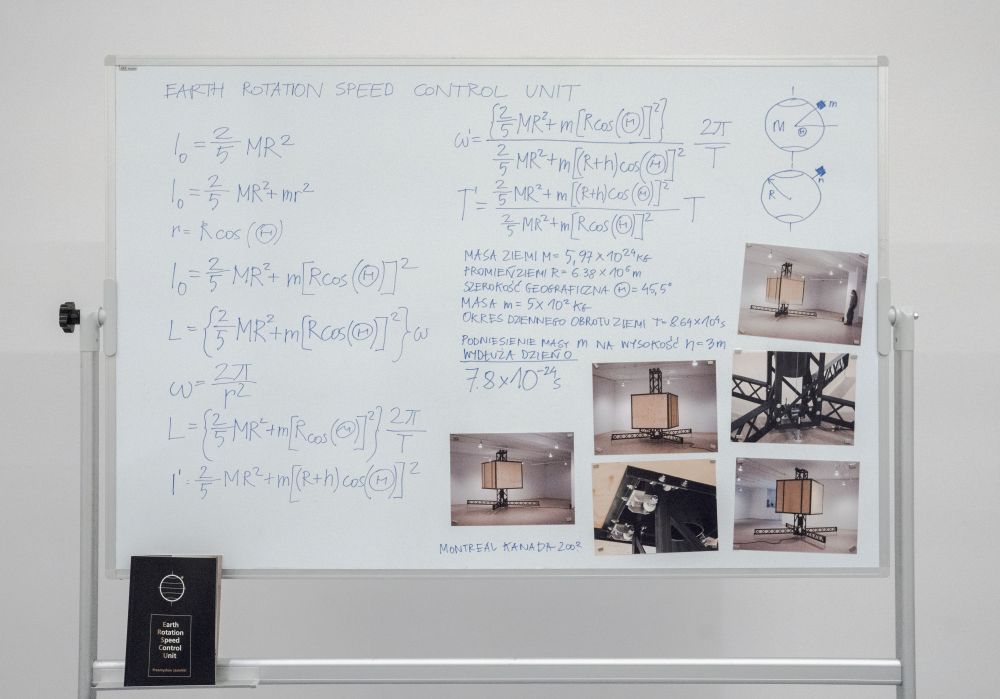 EARTH ROTATION SPEED CONTROL UNIT
I₀ = 2/5 MR²
I₀ = 2/5 MR² + mr²
r = R cos(Θ)
I₀ = 2/5 MR² + m[R cos(Θ)]²
L = {2/5 MR² + m[R cos(Θ)]²} ω
ω = 2π/r²
L = {2/5 MR² + m[R cos(Θ)]²} 2π/T
I' = 2/5 MR² + m[(R+h) cos(Θ)]²
ω' = {2/5 MR² + m[R cos(Θ)]²} / 2/5 MR² + m[(R+h) cos(Θ)]² 2π/T
T' = 2/5 MR² + m[(R+h) cos(Θ)]² / 2/5 MR² + m[R cos(Θ)]² T
MASA ZIEMI M = 5,97 × 10²⁴ KG
PROMIEŃ ZIEMI R = 6.38 × 10⁶ m
SZEROKOŚĆ GEOGRAFICZNA Θ = 45,5°
MASA m = 5 × 10² KG
OKRES DZIENNEGO OBROTU ZIEMI T = 8.64 × 10⁴ s
PODNIESIENIE MASY m NA WYSOKOŚĆ h = 3m
WYDŁUŻA DZIEŃ O
7.8 × 10⁻²⁴ s
m
M
Θ
R
MONTREAL KANADA 2002
Earth
Rotation
Speed
Control
Unit